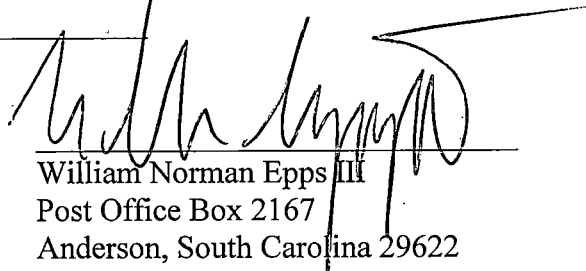 William Norman Epps III
Post Office Box 2167
Anderson, South Carolina 29622